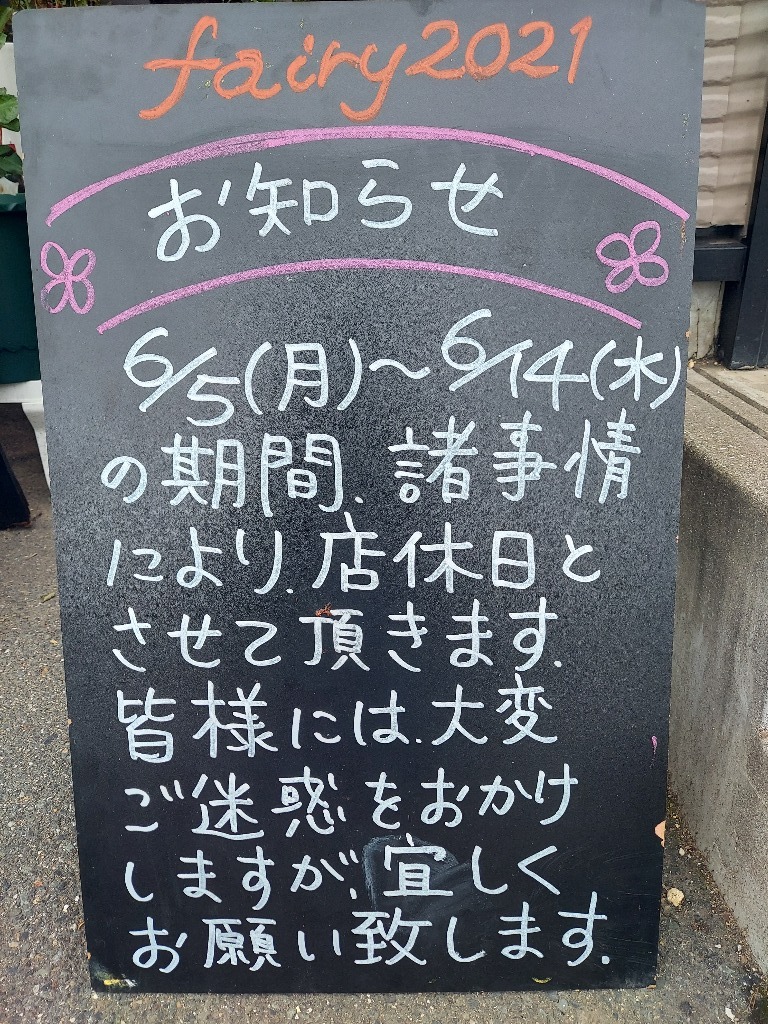 fairy2021
お知らせ
6/5(月)～6/14(水)
の期間、諸事情
により、店休日と
させて頂きます。
皆様には、大変
ご迷惑をおかけ
しますが、宜しく
お願い致します。